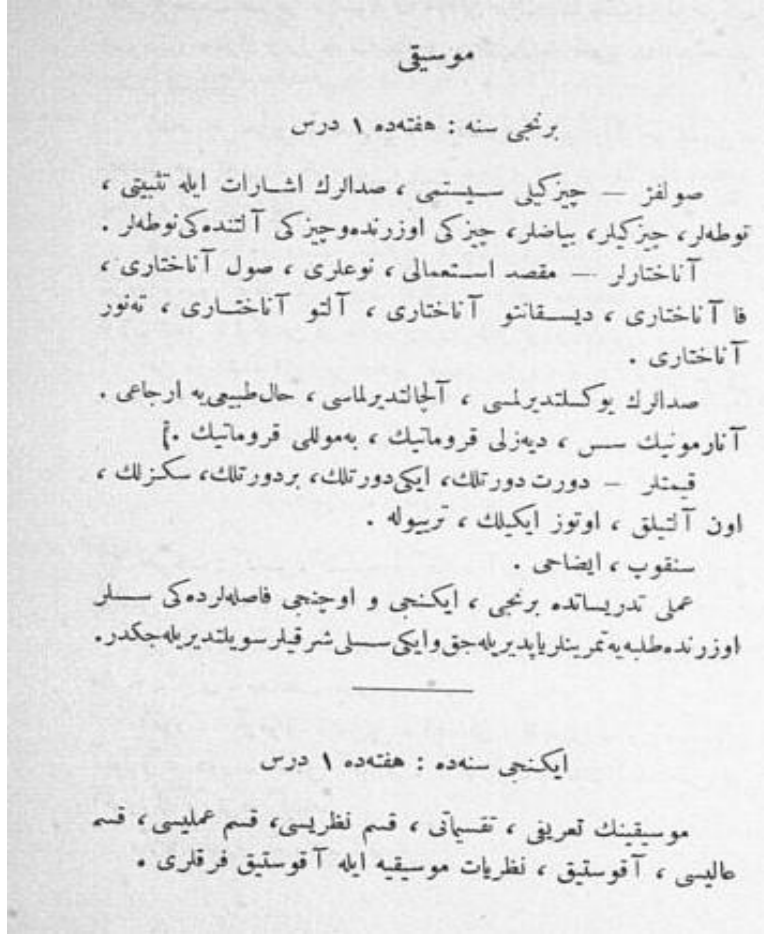 موسیقی
برنجی سنه : هفته‌ده ۱ درس
صولفژ — چیزکیلی سیستمی ، صدالرك اشارات ایله تثبیتی ،
نوطه‌لر ، چیزکیلر ، بیاضلر ، چیزکی اوزرنده‌وچیزکی آلتنده‌کی‌نوطه‌لر .
آناختارلر — مقصد استعمالی ، نوعلری ، صول آناختاری ،
فا آناختاری ، دیسقانتو آناختاری ، آلتو آناختاری ، ته‌نور
آناختاری .
صدالرك یوکسلتدیرلمسی ، آلچالتدیرلماسی ، حال‌طبیعی‌یه ارجاعی .
آنارمونیك سس ، دیه‌زلی قروماتیك ، به‌موللی قروماتیك .
قیمتلر — دورت دورتلك، ایکی‌دورتلك، بردورتلك، سکزلك ،
اون آلتیلق ، اوتوز ایکیلك ، تریوله .
سنقوب ، ایضاحی .
عملی تدریساتده برنجی ، ایکنجی و اوچنجی فاصله‌لرده‌کی سسلر
اوزرنده‌طلبه‌یه‌تمرینلریاپدیریله‌جق‌وایکی‌سسلی‌شرقیلرسویلتدیریله‌جکدر.
ایکنجی سنه‌ده : هفته‌ده ۱ درس
موسیقینك تعریفی ، تقسیماتی ، قسم نظریسی، قسم عملیسی، قسم
عالیسی ، آقوستیق ، نظریات موسیقیه ایله آقوستیق فرقلری .